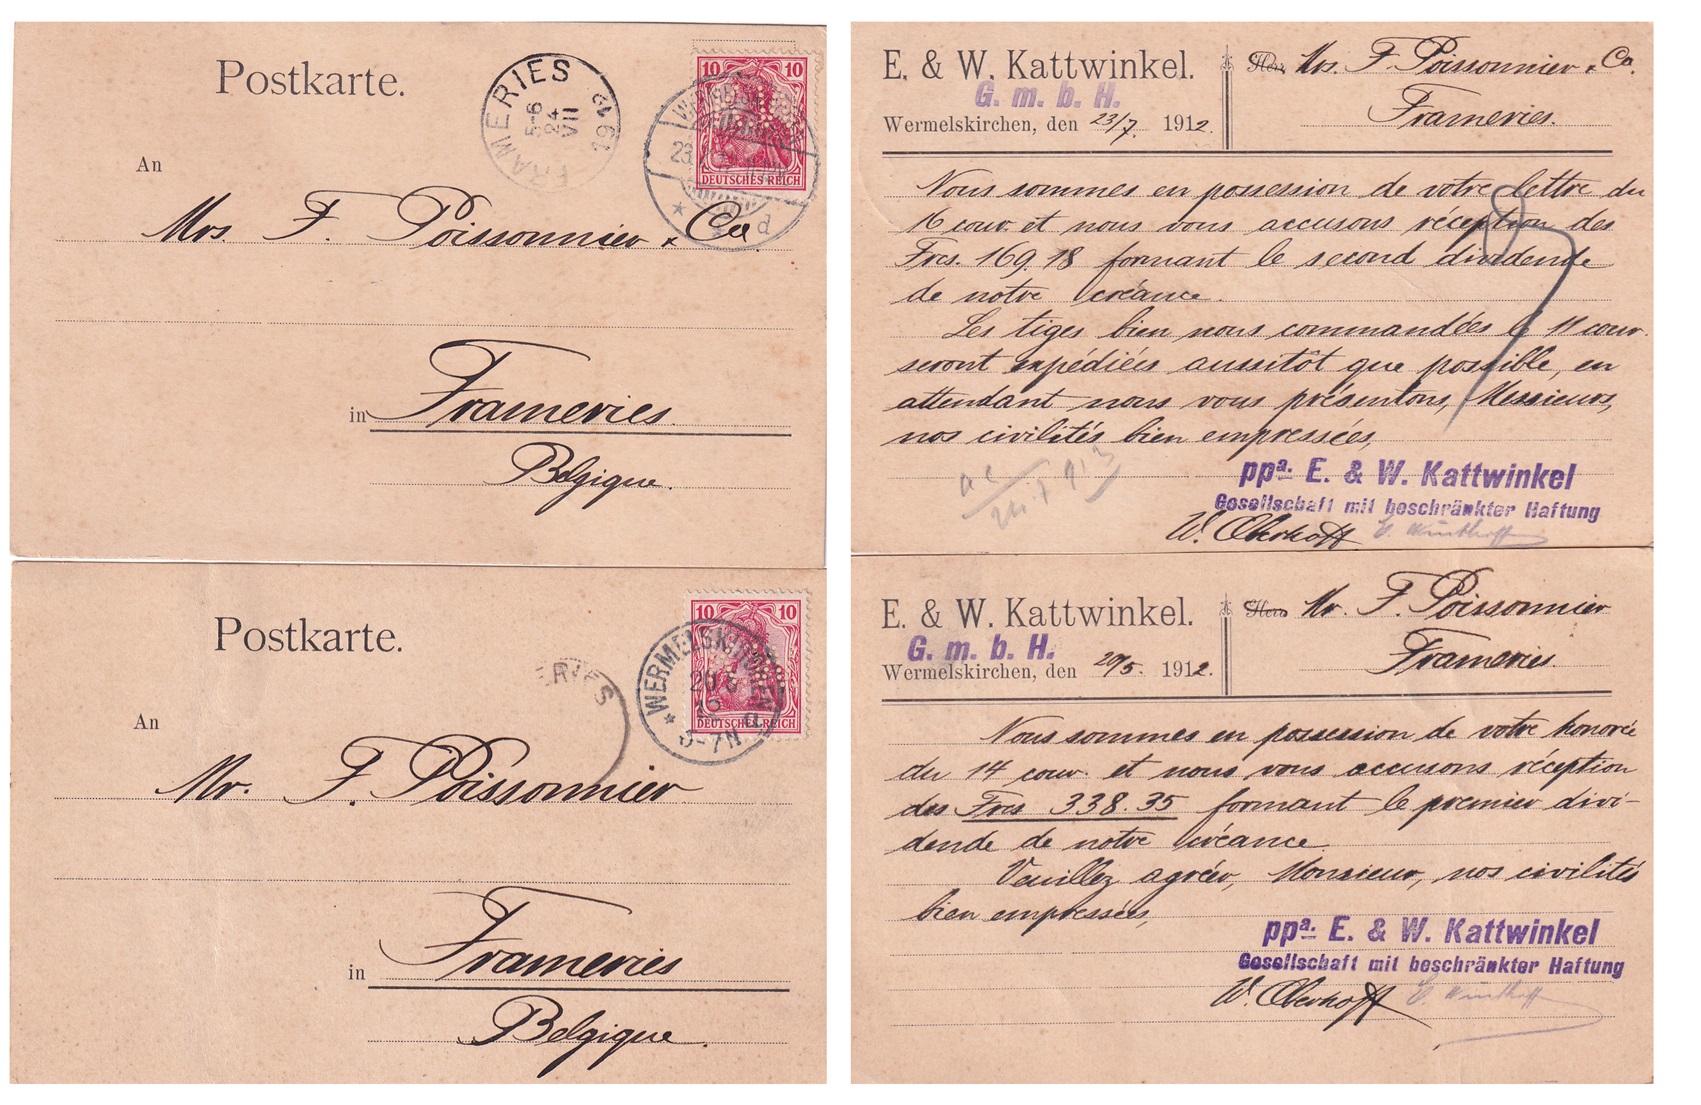 Postkarte.
FRAMERIES
5-6
24
VII
1912
FRAMERIES
10 10
DEUTSCHES REICH
WERMELSKIRCHEN
23.
d
An
Mrs. F. Poissonnier & Co.
in Frameries.
Belgique.
E. & W. Kattwinkel.
G. m. b. H.
Wermelskirchen, den 23/7. 1912.
Herrn Mrs. F. Poissonnier & Co.
Frameries.
Nous sommes en possession de votre lettre du
16 cour. et nous vous accusons réception des
Frcs. 169.18 formant le second dividende
de notre créance.
Les tiges bien nous commandées le 11 cour.
seront expédiées aussitôt que possible, en
attendant nous vous présentons, Messieurs,
nos civilités bien empressées,
ppa. E. & W. Kattwinkel
Gesellschaft mit beschränkter Haftung
W. Oberhoff
Postkarte.
ERIES
10 10
DEUTSCHES REICH
WERMELSKIRCHEN
20 5
12
5-7N
d
An
Mr. F. Poissonnier
in Frameries
Belgique.
E. & W. Kattwinkel.
G. m. b. H.
Wermelskirchen, den 20/5. 1912.
Herrn Mr. F. Poissonnier
Frameries.
Nous sommes en possession de votre honorée
du 14 cour. et nous vous accusons réception
des Frcs 338.35 formant le premier divi-
dende de notre créance.
Veuillez agréer, Monsieur, nos civilités
bien empressées,
ppa. E. & W. Kattwinkel
Gesellschaft mit beschränkter Haftung
W. Oberhoff